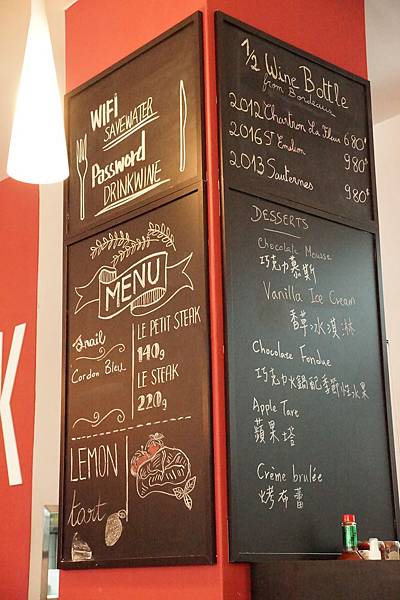 WiFi
SAVEWATER
Password
DRINKWINE
MENU
Snail
Cordon Bleu
LE PETIT STEAK
140g
LE STEAK
220g
LEMON
tart
1/2 Wine Bottle
from Bordeaux
2012 Chartron La Fleur 680$
2016 St Emilion 980$
2013 Sauternes 980$
DESSERTS
Chocolate Mousse
巧克力慕斯
Vanilla Ice Cream
香草冰淇淋
Chocolate Fondue
巧克力火鍋配季節性水果
Apple Tare
蘋果塔
Crème brulée
烤布蕾
K